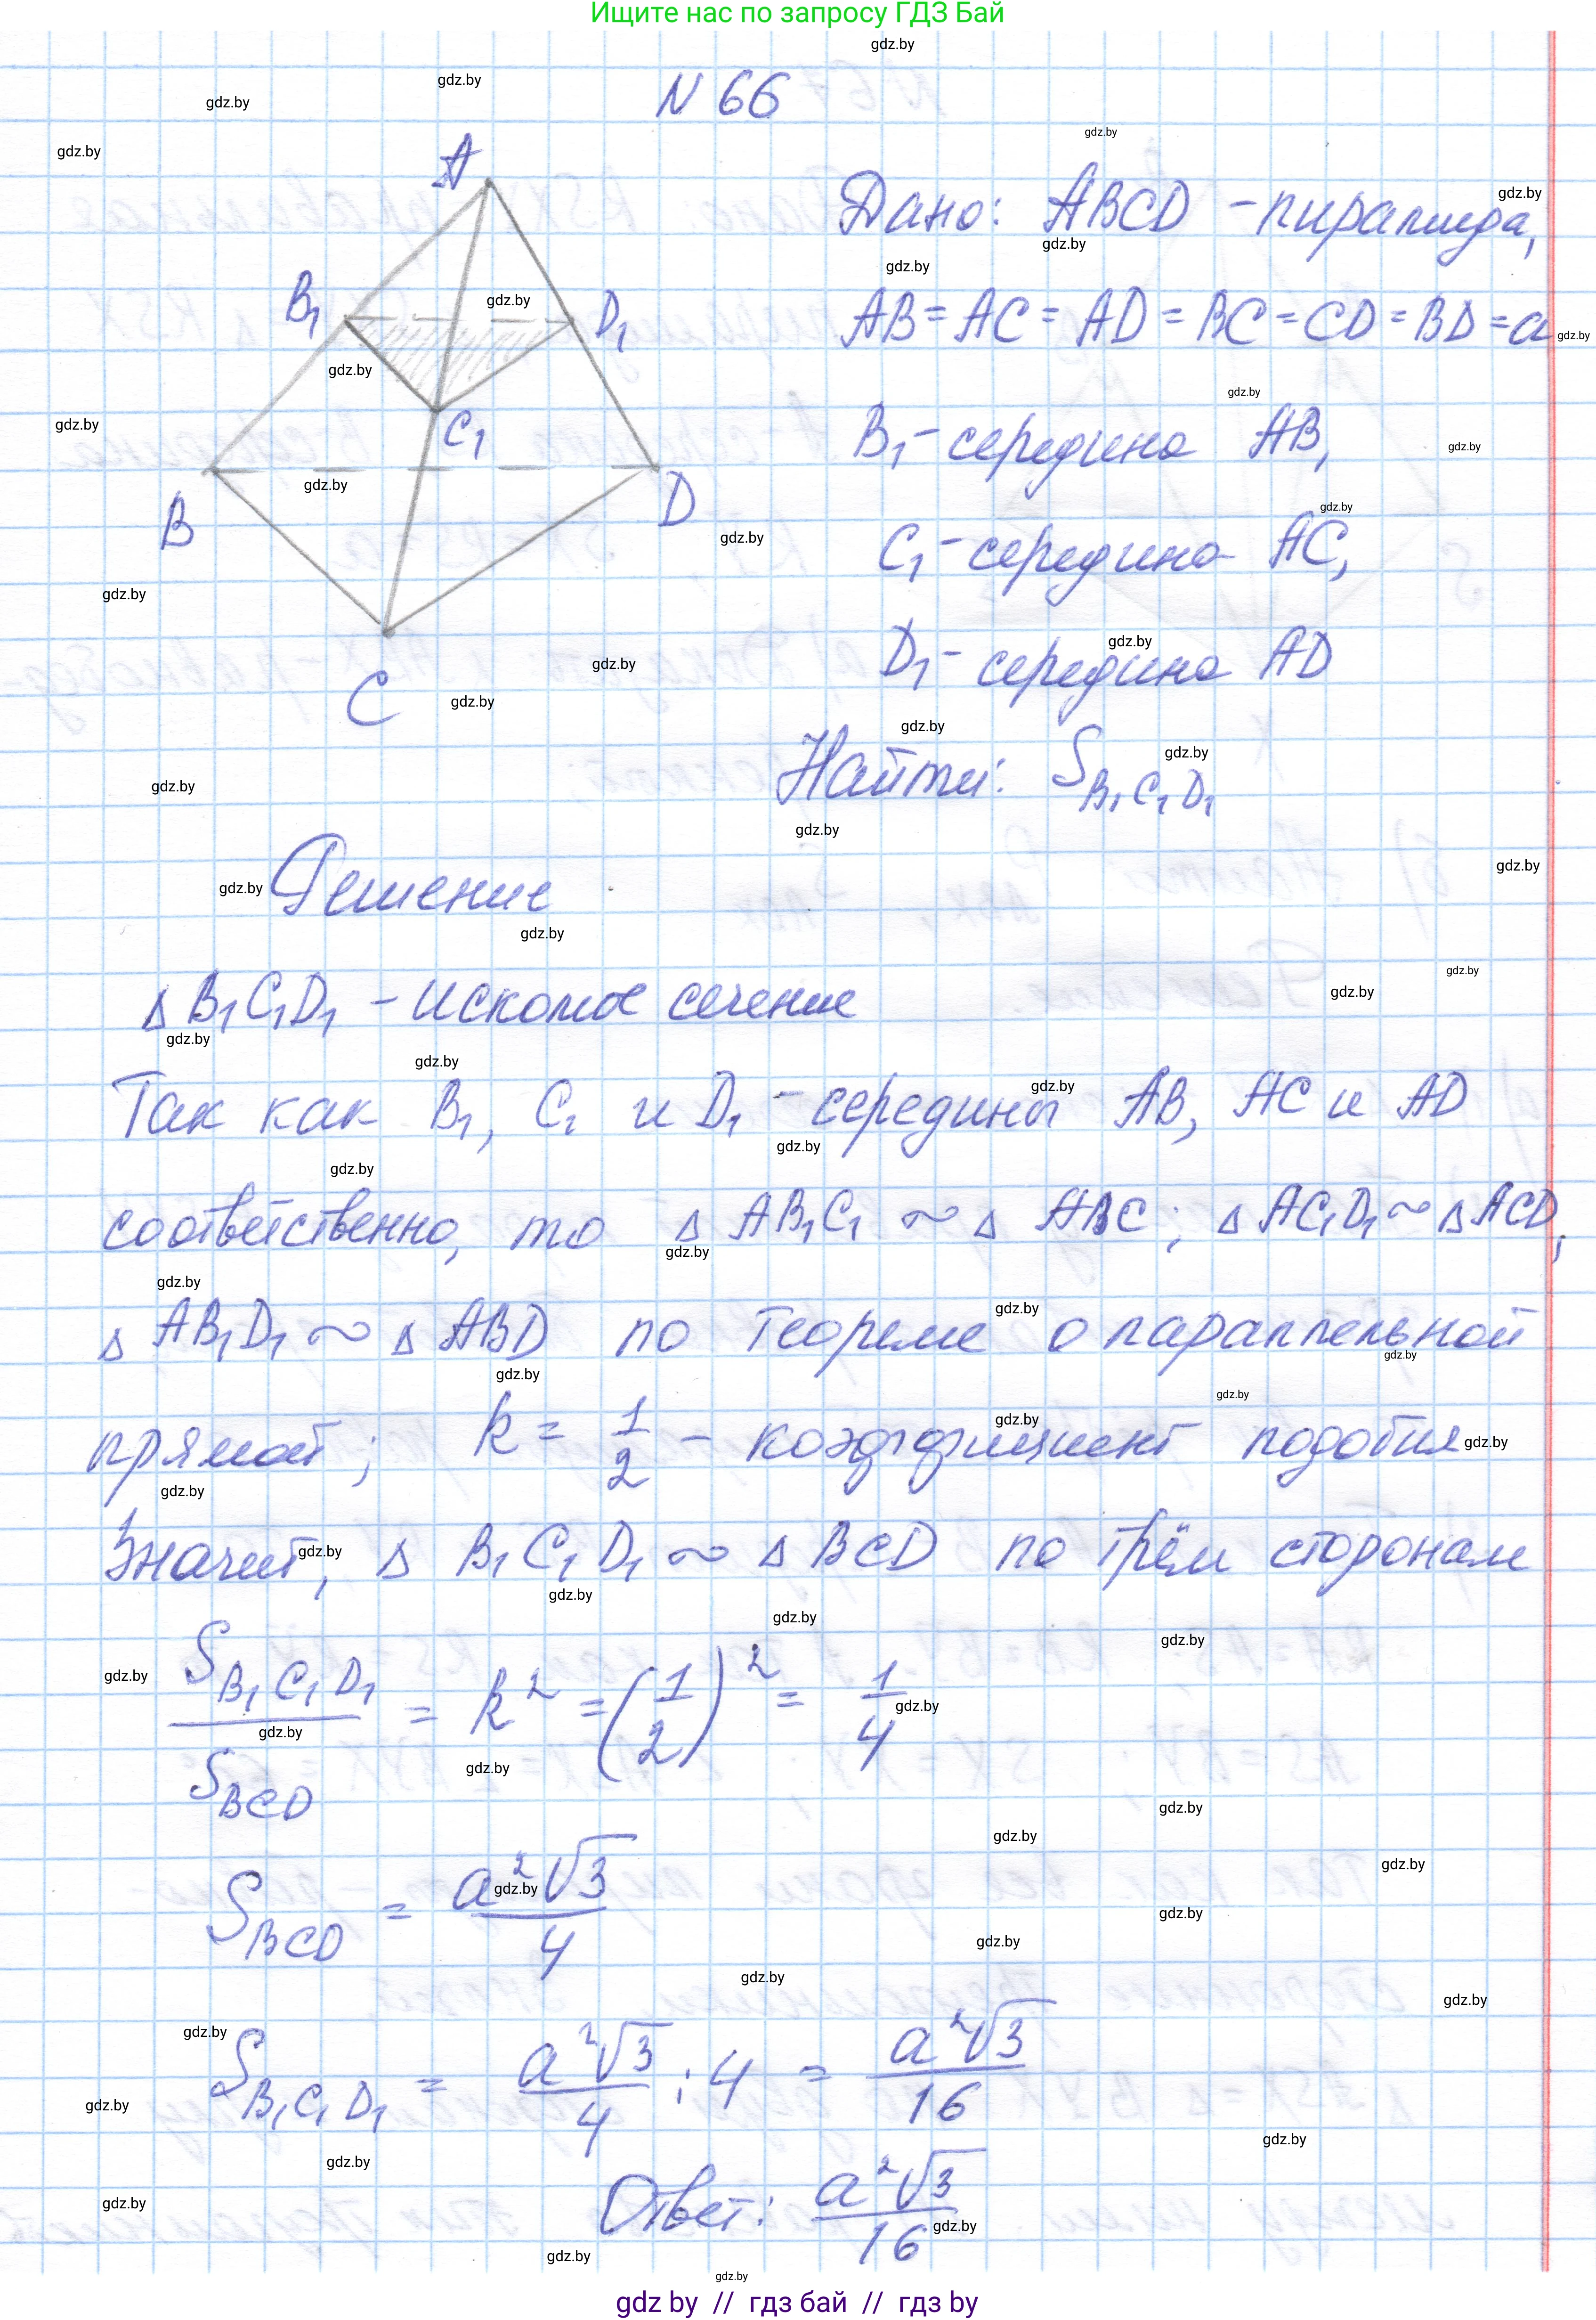 Ищите нас по запросу ГДЗ Бай
N 66
A
B₁
D₁
C₁
B
D
C
Дано: ABCD - пирамида,
AB = AC = AD = BC = CD = BD = a
B₁ - середина AB,
C₁ - середина AC,
D₁ - середина AD
Найти: S B₁C₁D₁
Решение
Δ B₁C₁D₁ - искомое сечение
Так как B₁, C₁ и D₁ - середины AB, AC и AD
соответственно, то Δ AB₁C₁ ~ Δ ABC; Δ AC₁D₁ ~ Δ ACD,
Δ AB₁D₁ ~ Δ ABD по теореме о параллельной
прямой; k = 1/2 - коэффициент подобия
Значит, Δ B₁C₁D₁ ~ Δ BCD по трём сторонам
S B₁C₁D₁ / S BCD = k² = (1/2)² = 1/4
S BCD = a²√3 / 4
S B₁C₁D₁ = a²√3 / 4 : 4 = a²√3 / 16
Ответ: a²√3 / 16
gdz.by
gdz by // гдз бай // гдз by